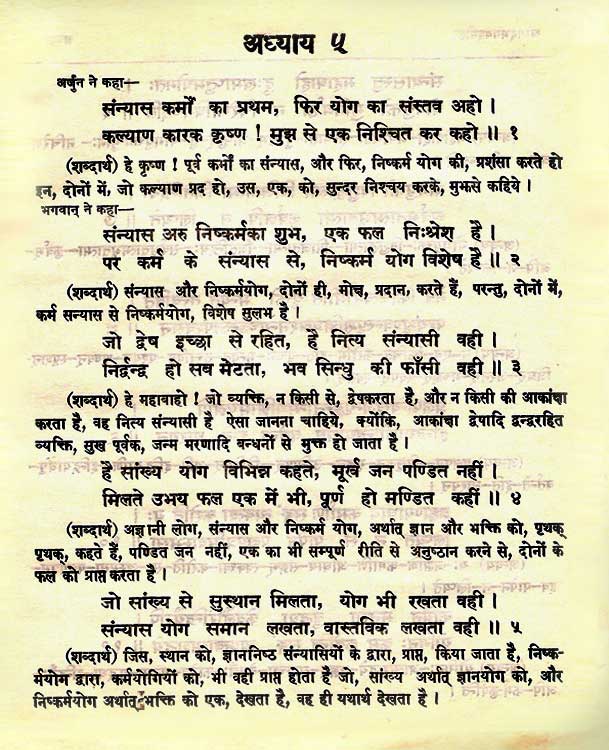 अध्याय ५
अर्जुन ने कहा—
संन्यास कर्मों का प्रथम, फिर योग का संस्तव अहो ।
कल्याण कारक कृष्ण ! मुझ से एक निश्चित कर कहो ॥ १
(शब्दार्थ) हे कृष्ण ! पूर्व कर्मों का संन्यास, और फिर, निष्कर्म योग की, प्रशंसा करते हो
इन, दोनों में, जो कल्याण प्रद हो, उस, एक, को, सुन्दर निश्चय करके, मुझसे कहिये ।
भगवान् ने कहा—
संन्यास अरु निष्कर्मका शुभ, एक फल निःश्रेश है ।
पर कर्म के संन्यास से, निष्कर्म योग विशेष है ॥ २
(शब्दार्थ) संन्यास और निष्कर्मयोग, दोनों ही, मोक्ष, प्रदान, करते हैं, परन्तु, दोनों में,
कर्म सन्यास से निष्कर्मयोग, विशेष सुलभ है ।
जो द्वेष इच्छा से रहित, है नित्य संन्यासी वही ।
निर्द्वन्द्व हो सब मेटता, भव सिन्धु की फाँसी वही ॥ ३
(शब्दार्थ) हे महावाहो ! जो व्यक्ति, न किसी से, द्वेषकरता है, और न किसी की आकांक्षा
करता है, वह नित्य संन्यासी है ऐसा जानना चाहिये, क्योंकि, आकांक्षा द्वेषादि द्वन्द्वरहित
व्यक्ति, सुख पूर्वक, जन्म मरणादि वन्धनों से मुक्त हो जाता है ।
है सांख्य योग विभिन्न कहते, मूर्ख जन पण्डित नहीं ।
मिलते उभय फल एक में भी, पूर्ण हो मण्डित कहीं ॥ ४
(शब्दार्थ) अज्ञानी लोग, संन्यास और निष्कर्म योग, अर्थात् ज्ञान और भक्ति को, पृथक्
पृथक्, कहते हैं, पण्डित जन नहीं, एक का भी सम्पूर्ण रीति से अनुष्ठान करने से, दोनों के
फल को प्राप्त करता है ।
जो सांख्य से सुस्थान मिलता, योग भी रखता वही ।
संन्यास योग समान लखता, वास्तविक लखता वही ॥ ५
(शब्दार्थ) जिस, स्थान को, ज्ञाननिष्ठ संन्यासियों के द्वारा, प्राप्त, किया जाता है, निष्क-
र्मयोग द्वारा, कर्मयोगियों को, भी वही प्राप्त होता है जो, सांख्य अर्थात् ज्ञानयोग को, और
निष्कर्मयोग अर्थात् भक्ति को एक, देखता है, वह ही यथार्थ देखता है ।